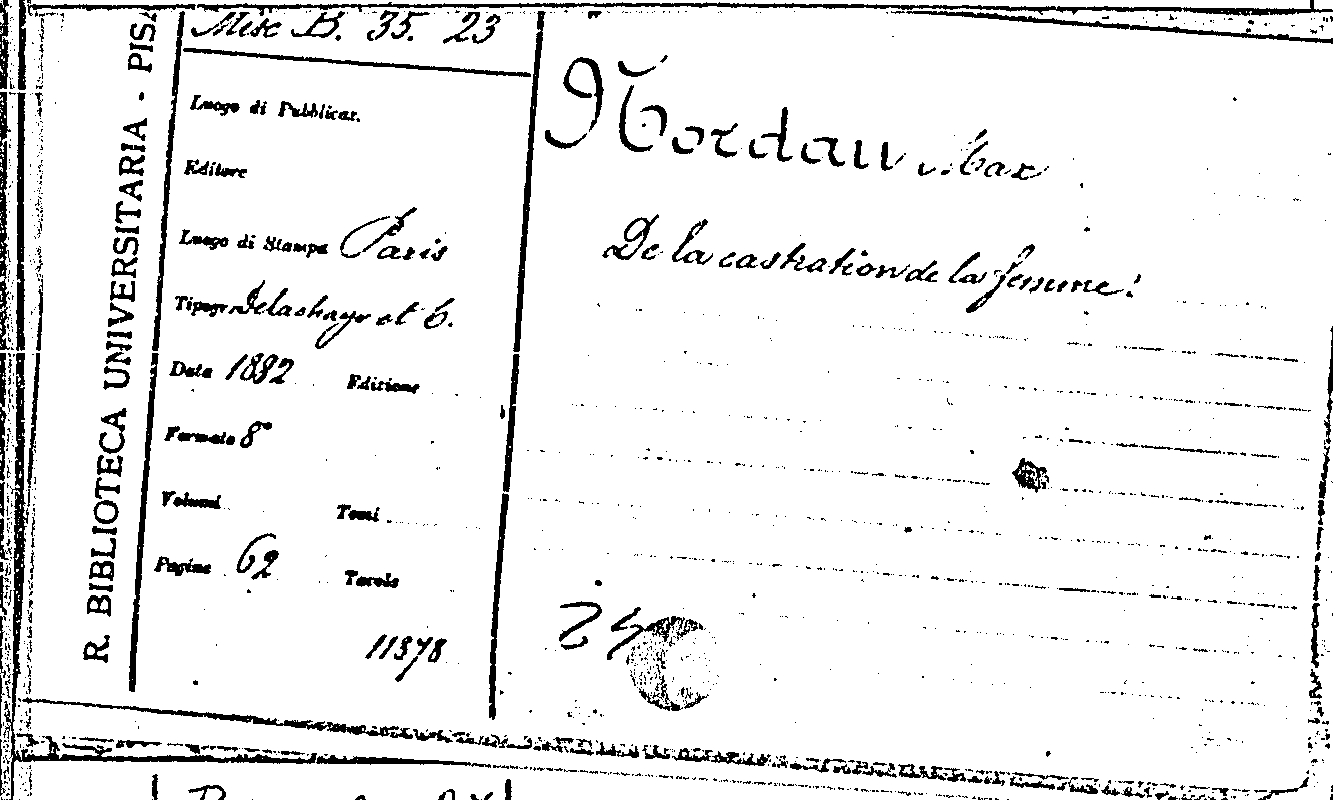 R. BIBLIOTECA UNIVERSITARIA - PISA
Misc B. 35. 23
Luogo di Pubblicaz.
Editore
Luogo di Stampa Paris
Tipogr. Delashaye et C.
Data 1882 Edizione
Formato 8°
Volumi Tomi
Pagine 62 Tavole
11378
Nordau Max
De la castration de la femme!